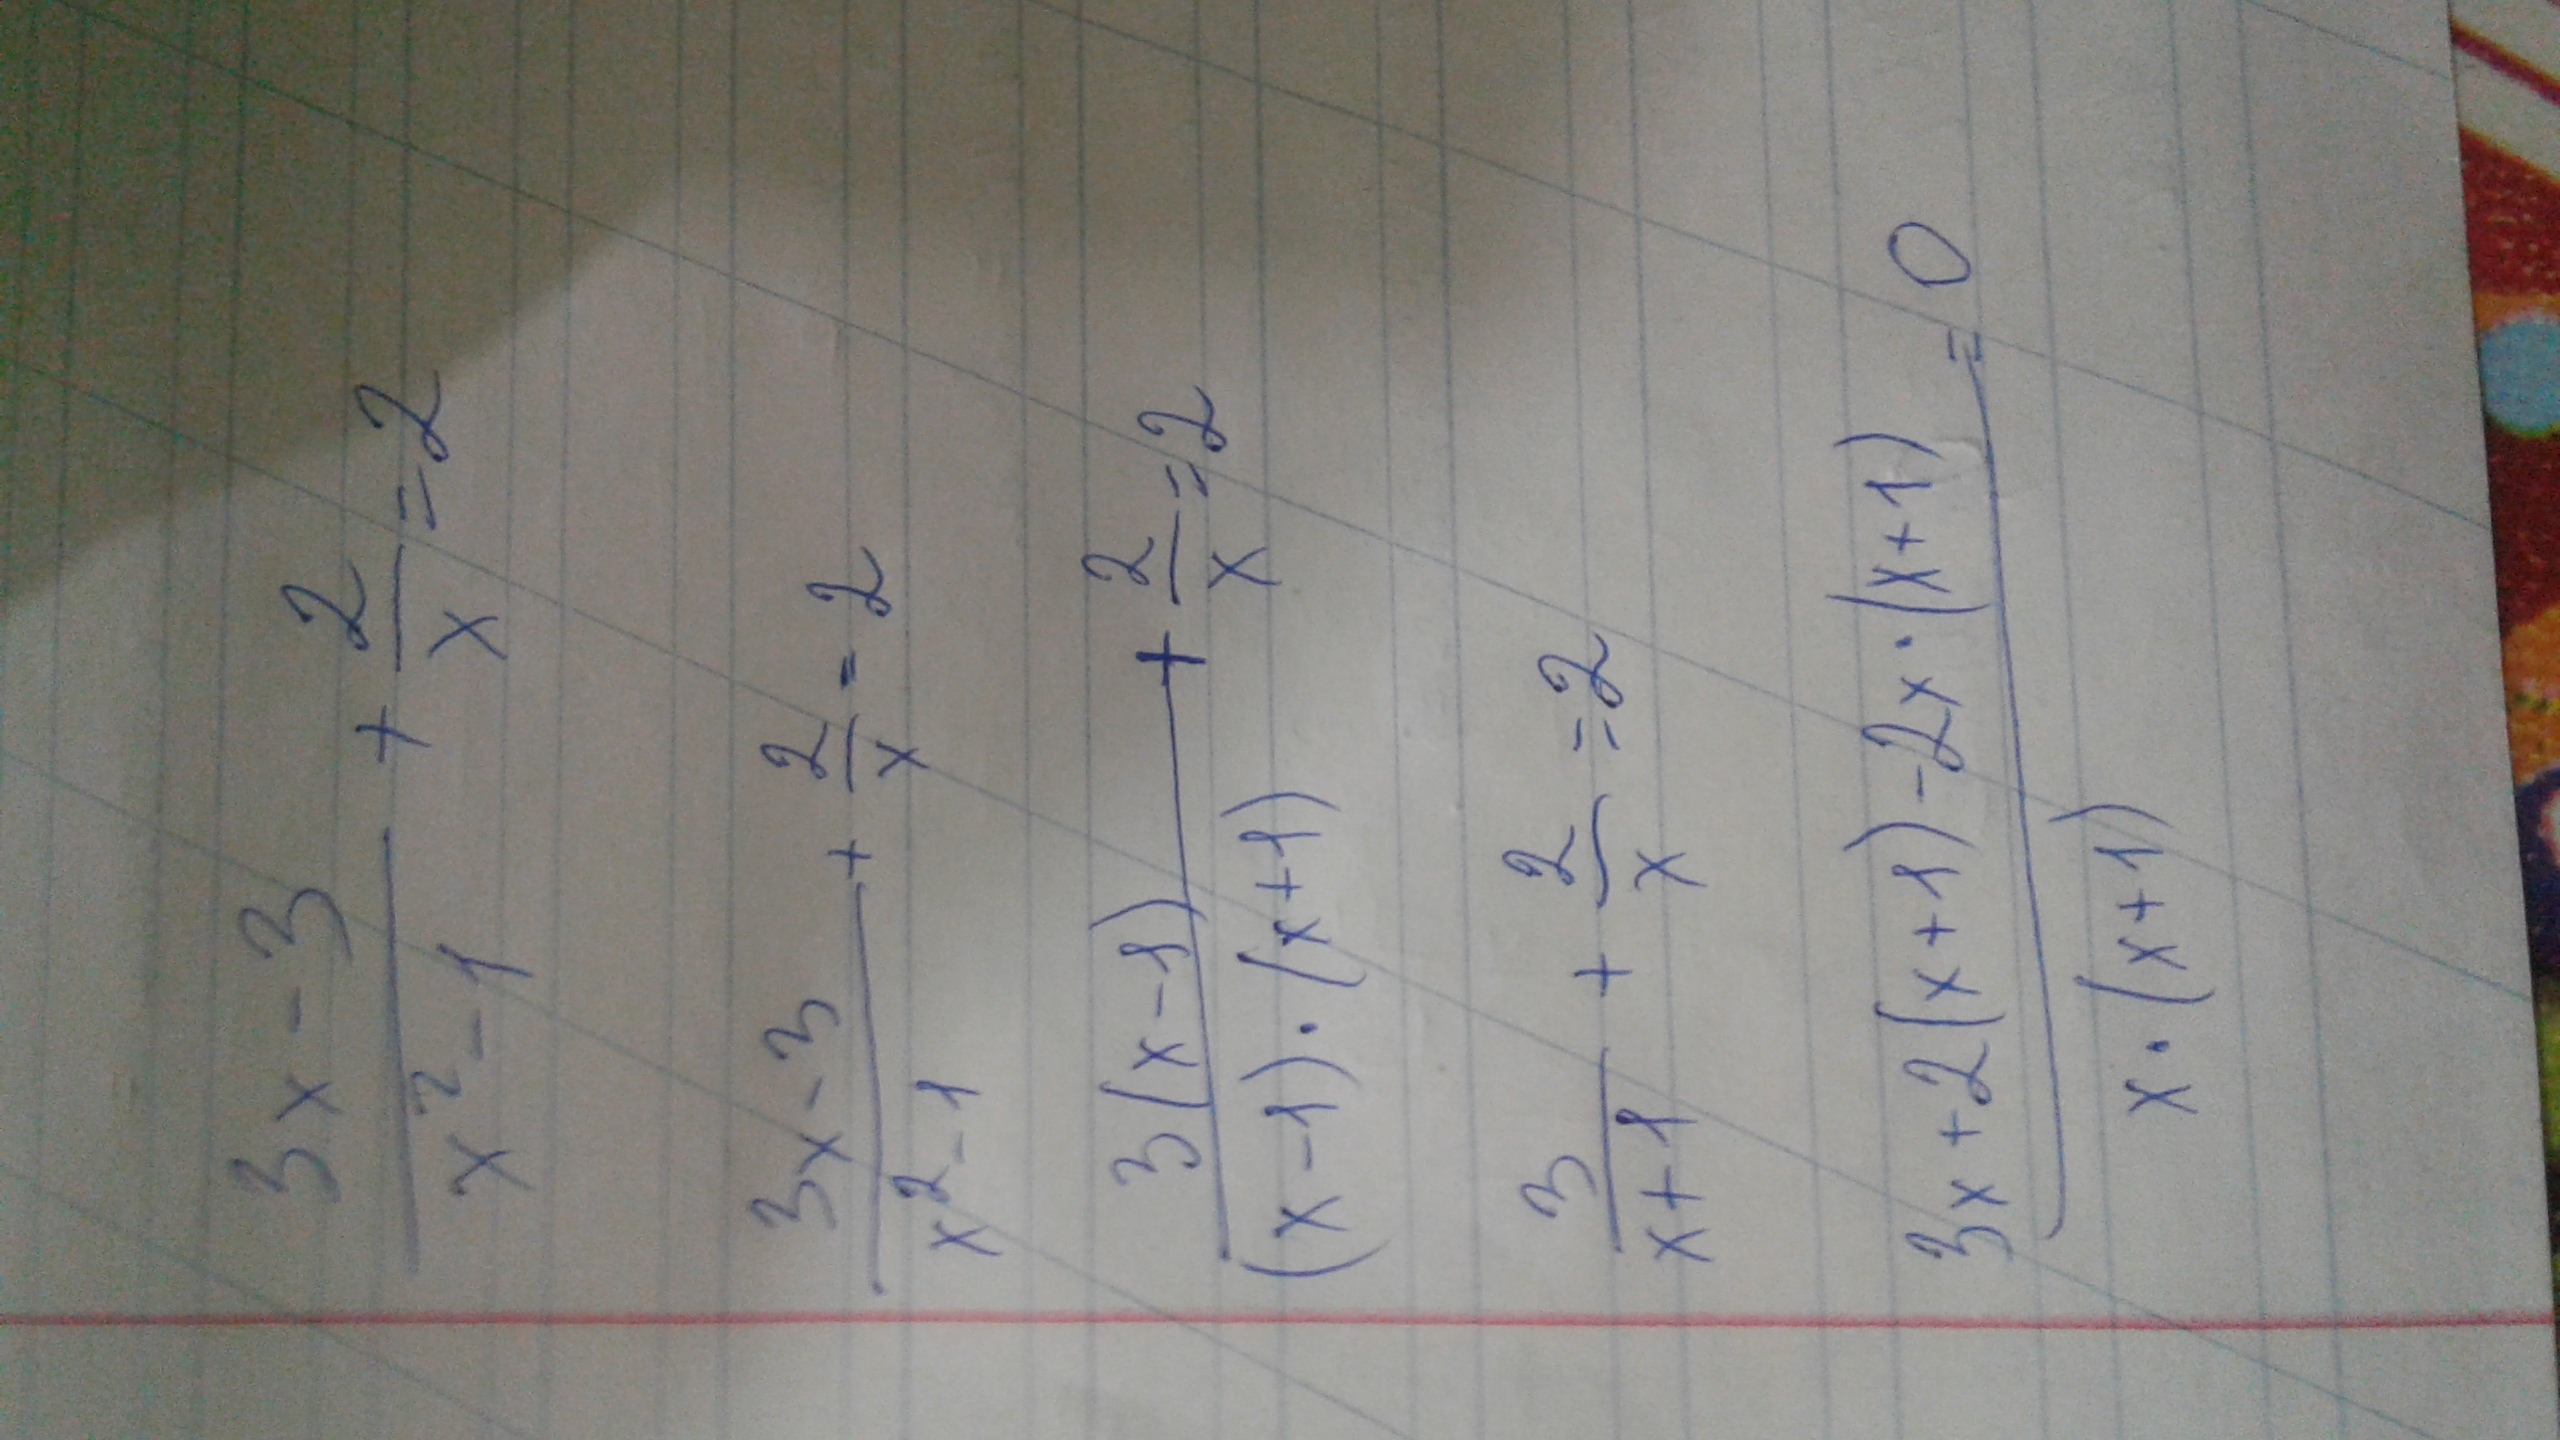 (3x-3)/(x²-1) + 2/x = 2
(3x-3)/(x²-1) + 2/x = 2
3(x-1)/((x-1)·(x+1)) + 2/x = 2
3/(x+1) + 2/x = 2
(3x+2(x+1)-2x·(x+1))/(x·(x+1)) = 0